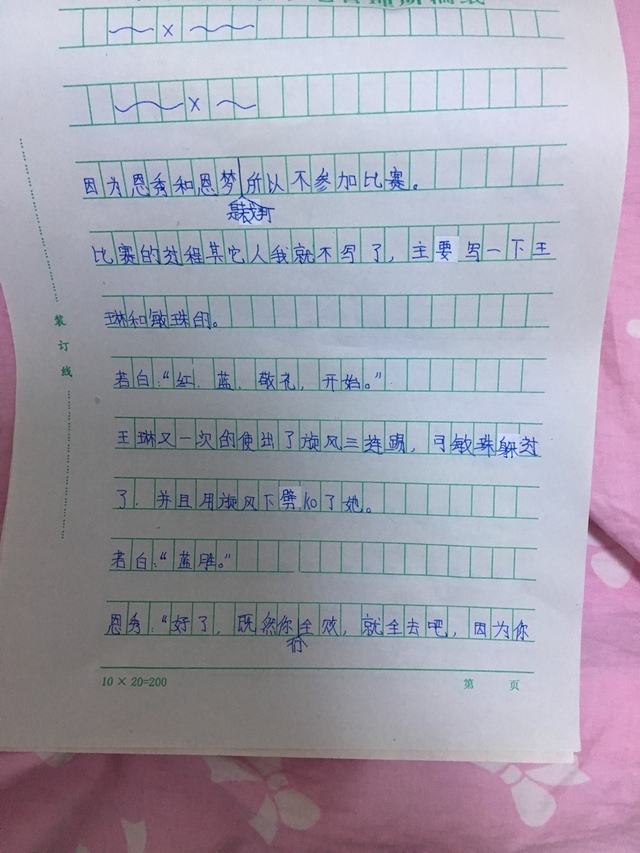 ～～×～～
～～×～～
因为恩秀和恩梦所以不参加比赛。
是裁判
比赛的过程其它人我就不写了，主要写一下王
琳和敏珠的。
若白：“红、蓝、敬礼，开始。”
王琳又一次的使出了旋风三连踢，可敏珠躲过
了，并且用旋风下劈KO了她。
若白：“蓝胜。”
恩秀：“好了，既然你全败，就全去吧，因为你
们
装订线
10×20=200
第 页